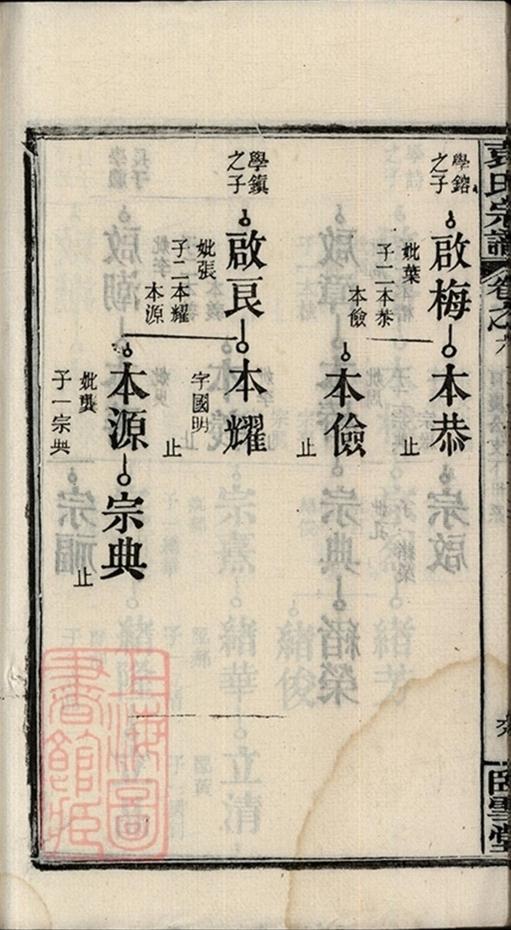 氏宗譜
卷之六
學鎔之子
啟梅
本恭
止
妣葉
子二本恭
本儉
本儉
止
學鎮之子
啟良
本耀
字國明
止
妣張
子二本耀
本源
本源
宗典
止
妣龔
子一宗典
上海圖
書館藏